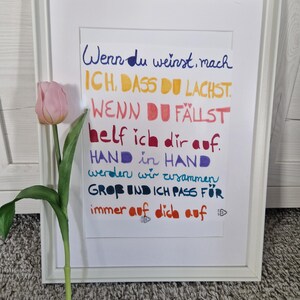 Wenn du weinst, mach
ICH, DASS DU LACHST.
WENN DU FÄLLST
helf ich dir auf.
HAND in HAND
werden wir zusammen
GROß UND ICH PASS FÜR
immer auf dich auf